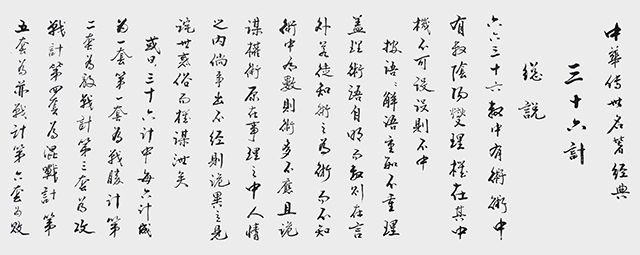 中華传世名著經典
三十六計
總說
六六三十六數中有術術中
有數陰陽燮理機在其中
機不可設設則不中
按語：解語重數不重理
盖理術語自明而數則在言
外若徒知術之為術而不知
術中有數則術多不應且詭
謀權術原在事理之中人情
之內倘事出不經則詭異立見
詫世惑俗而機謀泄矣
或曰三十六計中每六計成
為一套第一套為戰勝計第
二套為敵戰計第三套為攻
戰計第四套為混戰計第
五套為並戰計第六套為敗